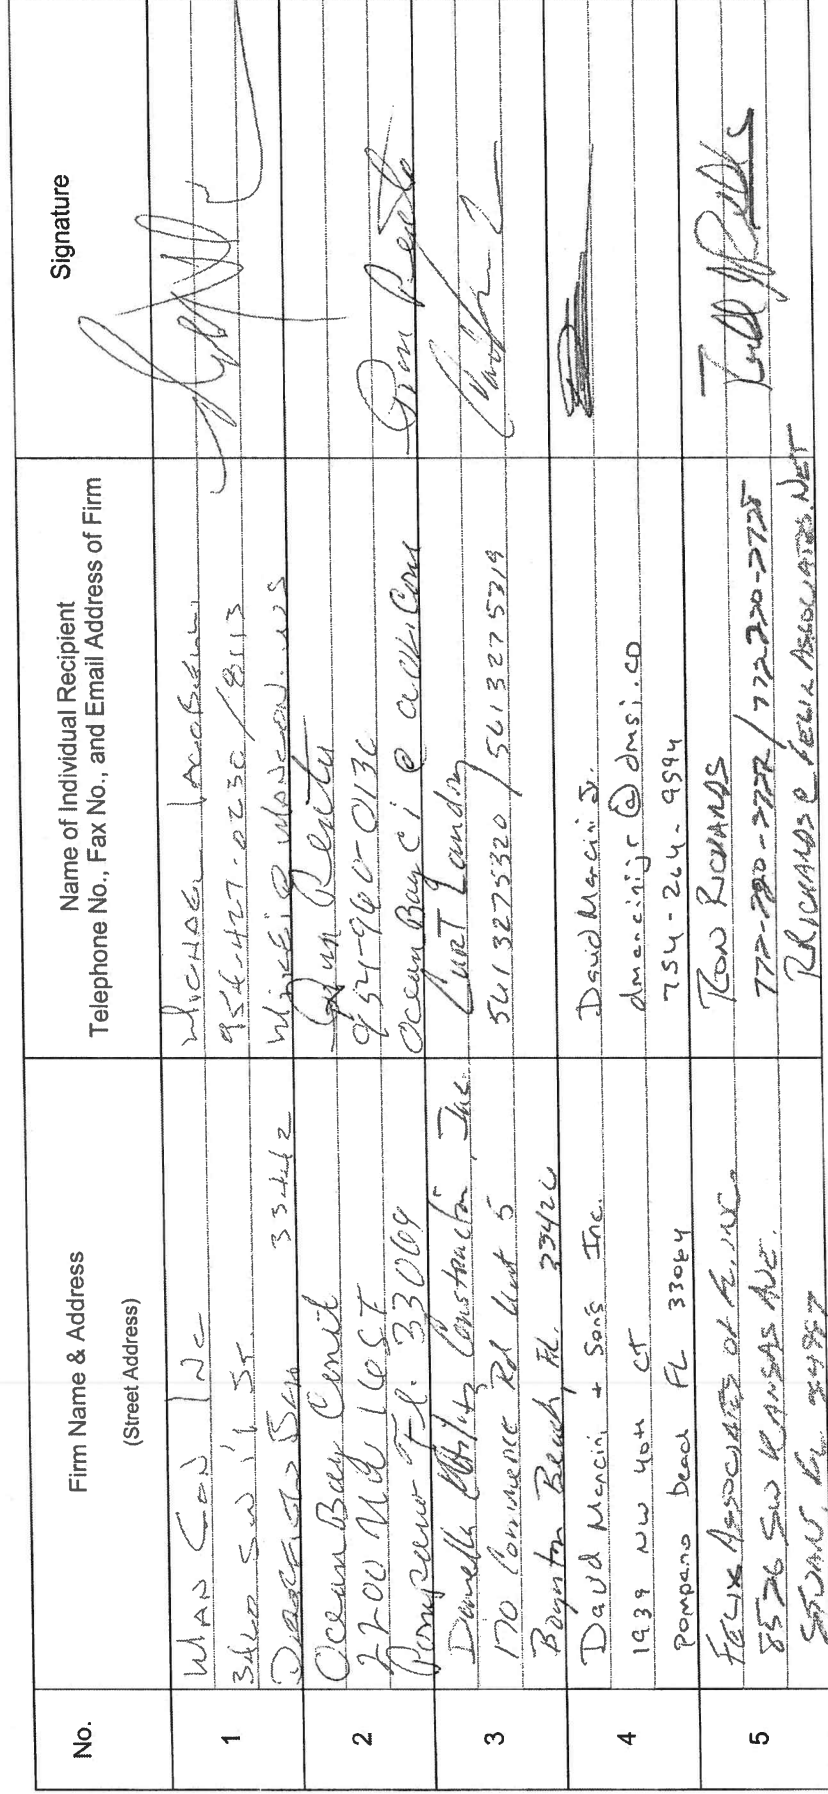 No.
Firm Name & Address
(Street Address)
Name of Individual Recipient
Telephone No., Fax No., and Email Address of Firm
Signature
1
Man Con Inc
3460 SW 11 St.
33442
Michael
2
Ocean Bay Const
2200 16 ST
Pompano Fl. 33069
954-960-0136
OceanBayCi@aol.Com
3
Danella Utility Construction, Inc.
170 Commerce Rd Unit 5
Boynton Beach, FL. 33426
Curt Landis
5613275320 / 5613275319
4
David Mancini & Sons Inc.
1939 NW 40th CT
Pompano beach FL 33064
David Mancini Jr.
dmancinijr@dmsi.co
754-264-9594
5
FELIX ASSOCIATES OF FL. INC.
8526 SW KANSAS AVE.
STUART, FL.
RON RICHARDS
772-220-2722 / 772-220-2728
RRICHARDS@FELIXASSOCIATES.NET